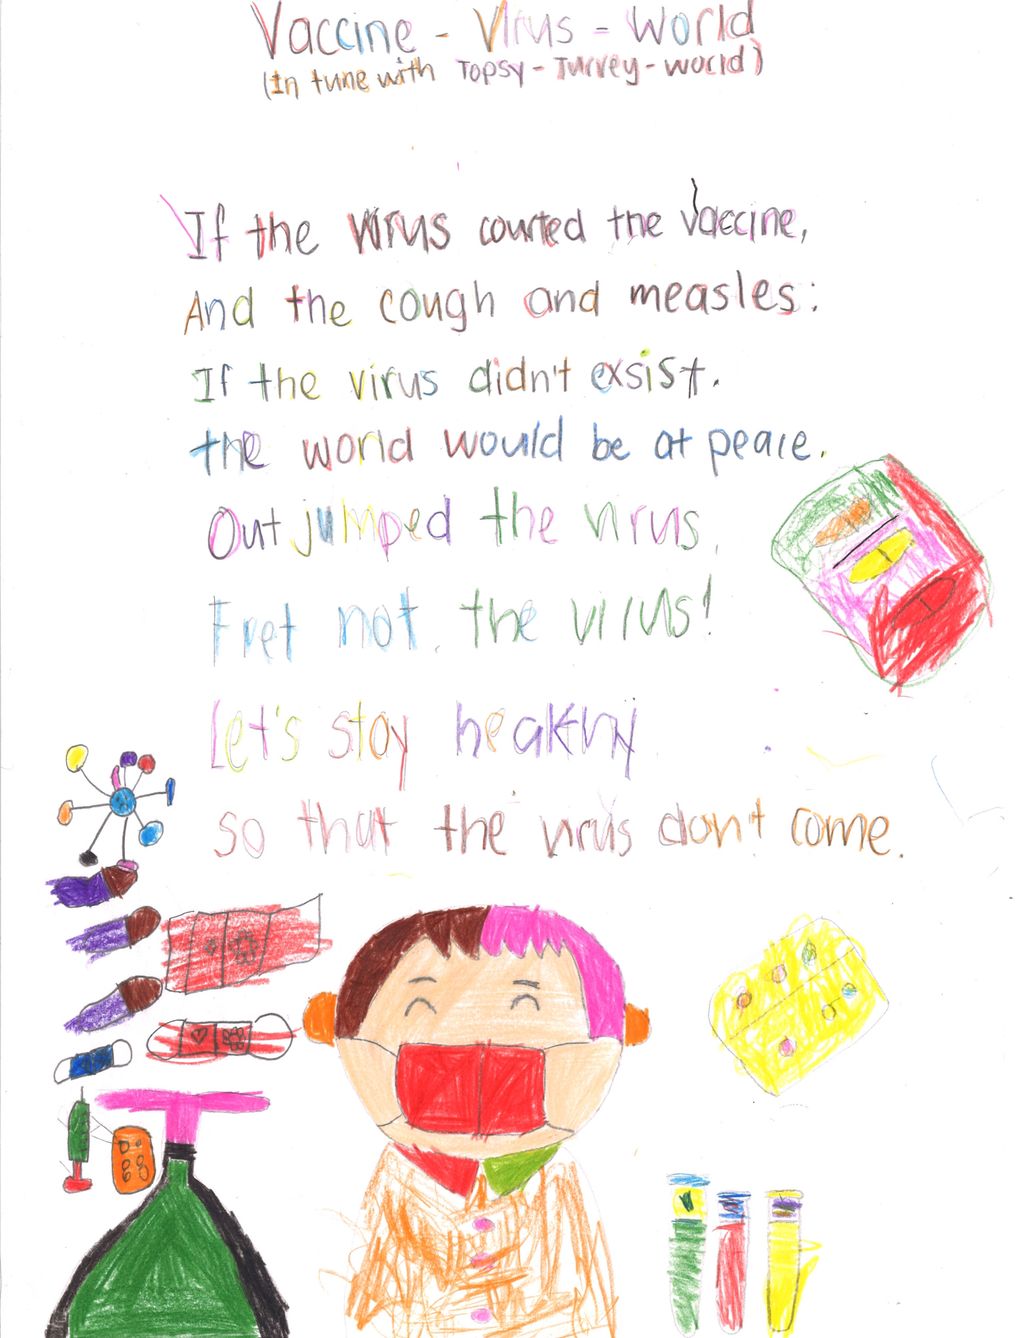 Vaccine - Virus - World
(In tune with Topsy-Turvey-world)
If the virus courted the vaccine,
And the cough and measles:
If the virus didn't exsist.
the world would be at peace.
Out jumped the virus,
Fret not, the virus!
Let's stay healthy
so that the virus don't come.